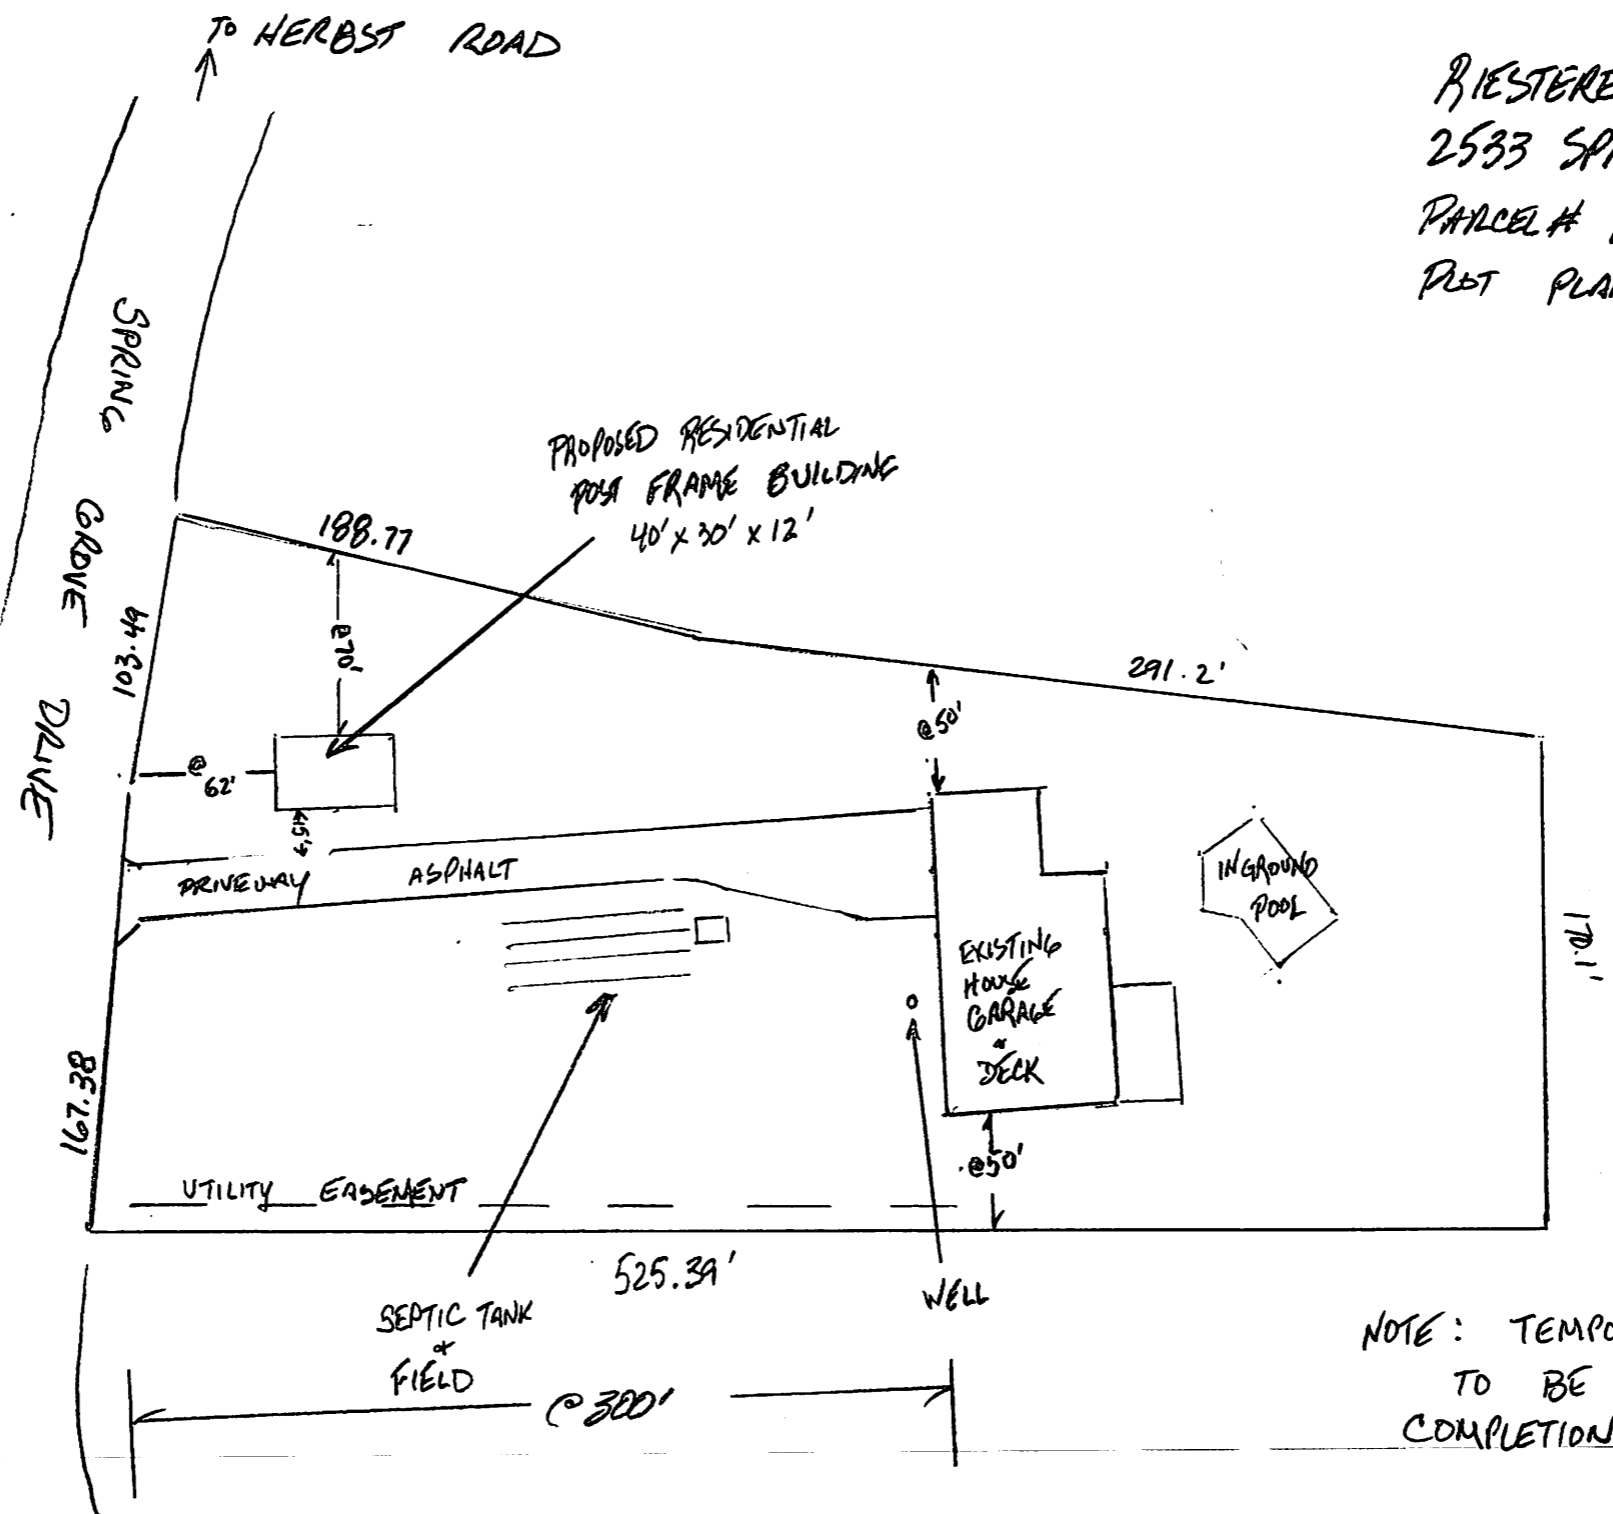 TO HERBST ROAD
RIESTERE
2533 SPR
PARCEL #
PLOT PLAN
SPRING GROVE DRIVE
PROPOSED RESIDENTIAL
POST FRAME BUILDING
40' x 30' x 12'
188.77
103.49
@70'
291.2'
@50'
@
62'
DRIVEWAY
ASPHALT
INGROUND
POOL
170.1'
EXISTING
HOUSE
GARAGE
&
DECK
167.38
@50'
UTILITY EASEMENT
525.39'
SEPTIC TANK
&
FIELD
WELL
@ 300'
NOTE: TEMPO
TO BE
COMPLETION